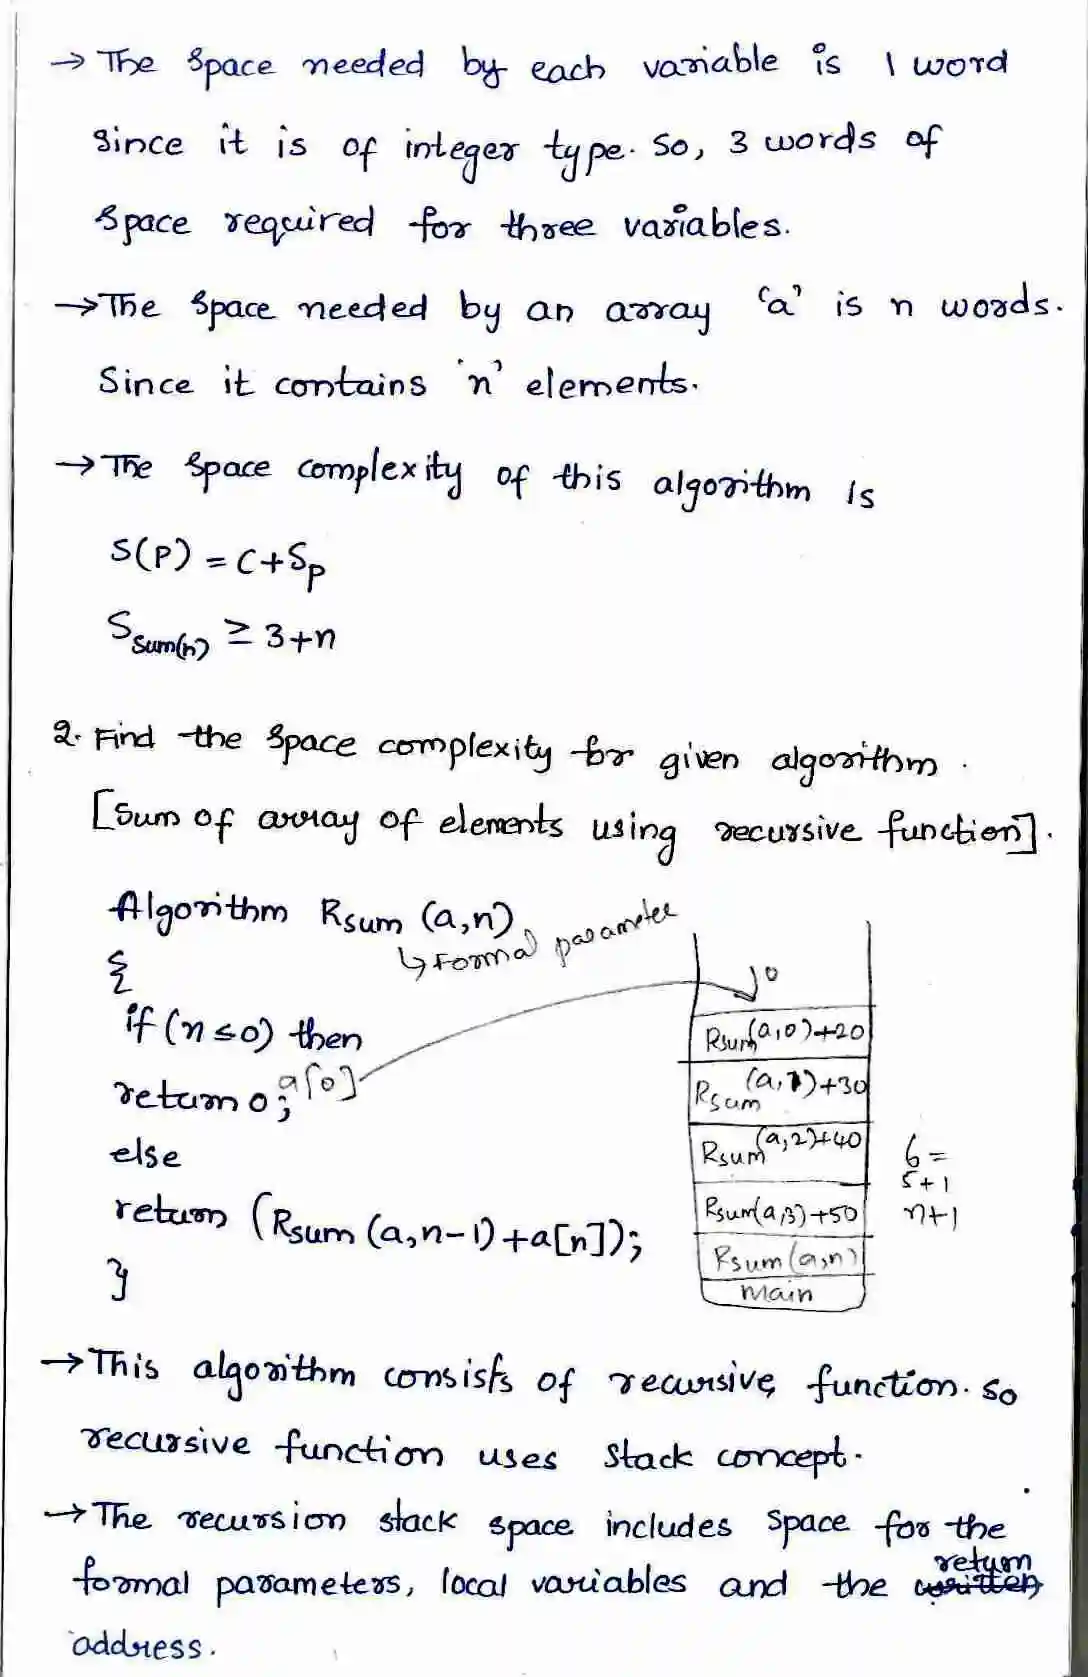 → The space needed by each variable is 1 word
since it is of integer type. So, 3 words of
space required for three variables.
→ The space needed by an array 'a' is n words.
Since it contains 'n' elements.
→ The space complexity of this algorithm is
S(P) = C+Sp
Ssum(n) ≥ 3+n
2. Find the space complexity for given algorithm.
[Sum of array of elements using recursive function].
Algorithm Rsum (a,n)
↳ Formal parameter
{
if (n ≤ 0) then
return 0; a[0]
else
return (Rsum (a,n-1) + a[n]);
}
0
Rsum(a,0)+20
Rsum(a,1)+30
Rsum(a,2)+40
Rsum(a,3)+50
Rsum(a,n)
main
6 =
5+1
n+1
→ This algorithm consists of recursive function. so
recursive function uses stack concept.
→ The recursion stack space includes space for the
formal parameters, local variables and the return
address.